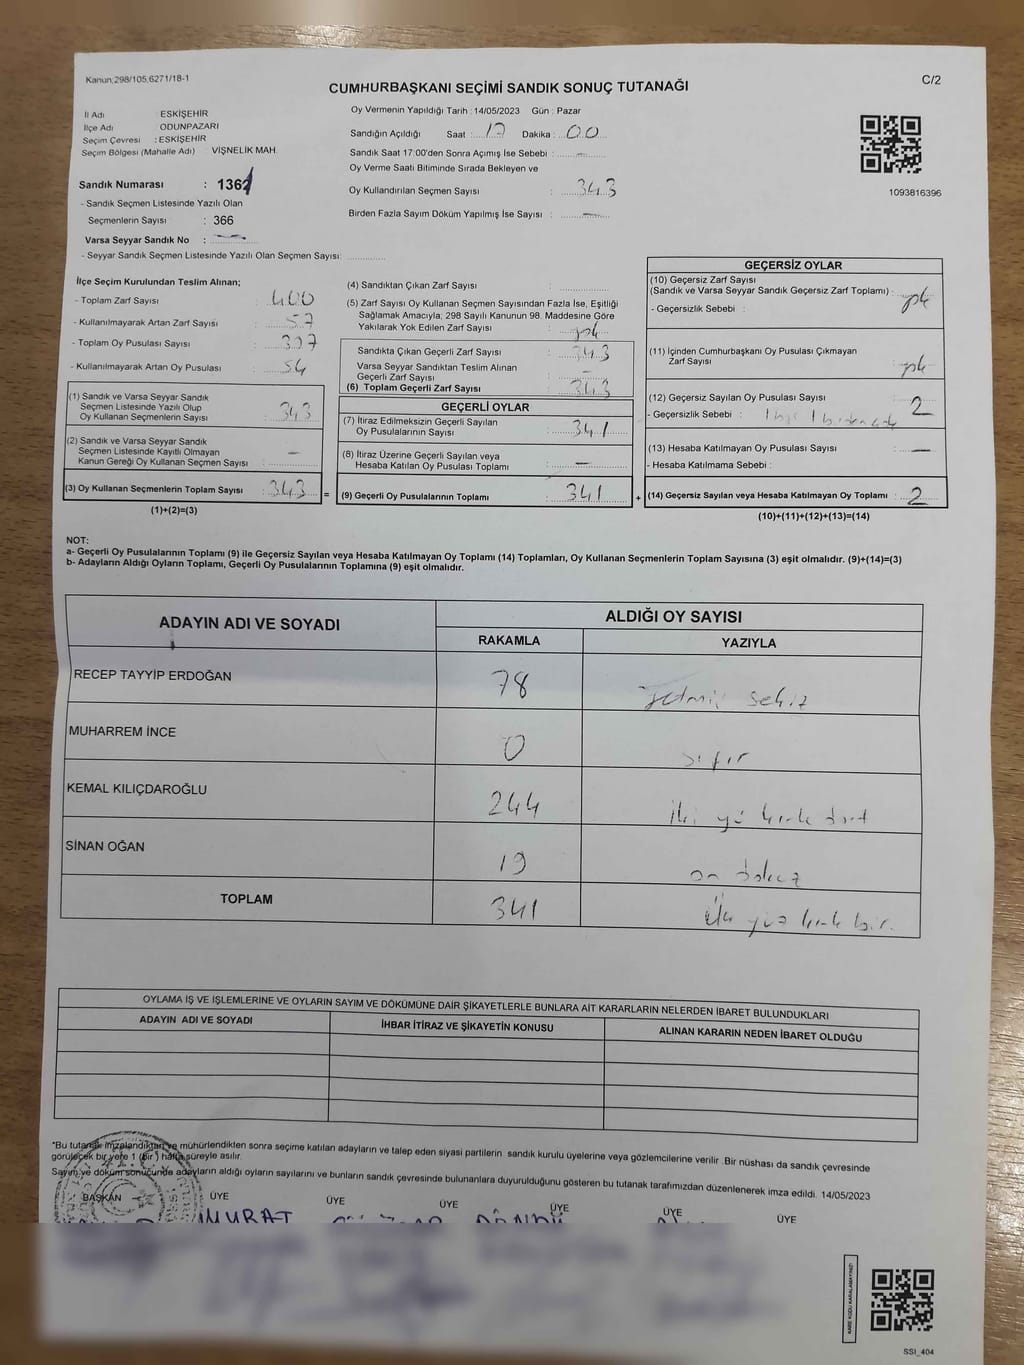 Kanun;298/105,6271/18-1
C/2
CUMHURBAŞKANI SEÇİMİ SANDIK SONUÇ TUTANAĞI
İl Adı : ESKİŞEHİR
İlçe Adı ODUNPAZARI
Seçim Çevresi : ESKİŞEHİR
Seçim Bölgesi (Mahalle Adı) : VİŞNELİK MAH.
Sandık Numarası : 1362
- Sandık Seçmen Listesinde Yazılı Olan
Seçmenlerin Sayısı : 366
Varsa Seyyar Sandık No : —
- Seyyar Sandık Seçmen Listesinde Yazılı Olan Seçmen Sayısı:
Oy Vermenin Yapıldığı Tarih : 14/05/2023 Gün : Pazar
Sandığın Açıldığı Saat : 17 Dakika : 00
Sandık Saat 17:00'den Sonra Açımış İse Sebebi : —
Oy Verme Saati Bitiminde Sırada Bekleyen ve
Oy Kullandırılan Seçmen Sayısı : 343
Birden Fazla Sayım Döküm Yapılmış İse Sayısı : —
1093816396
İlçe Seçim Kurulundan Teslim Alınan;
- Toplam Zarf Sayısı : 400
- Kullanılmayarak Artan Zarf Sayısı : 57
- Toplam Oy Pusulası Sayısı : 397
- Kullanılmayarak Artan Oy Pusulası : 54
(1) Sandık ve Varsa Seyyar Sandık
Seçmen Listesinde Yazılı Olup
Oy Kullanan Seçmenlerin Sayısı : 343
(2) Sandık ve Varsa Seyyar Sandık
Seçmen Listesinde Kayıtlı Olmayan
Kanun Gereği Oy Kullanan Seçmen Sayısı : —
(3) Oy Kullanan Seçmenlerin Toplam Sayısı : 343 =
(1)+(2)=(3)
(4) Sandıktan Çıkan Zarf Sayısı :
(5) Zarf Sayısı Oy Kullanan Seçmen Sayısından Fazla İse, Eşitliği
Sağlamak Amacıyla; 298 Sayılı Kanunun 98. Maddesine Göre
Yakılarak Yok Edilen Zarf Sayısı : yok
Sandıkta Çıkan Geçerli Zarf Sayısı : 343
Varsa Seyyar Sandıktan Teslim Alınan
Geçerli Zarf Sayısı : —
(6) Toplam Geçerli Zarf Sayısı : 343
GEÇERLİ OYLAR
(7) İtiraz Edilmeksizin Geçerli Sayılan
Oy Pusulalarının Sayısı : 341
(8) İtiraz Üzerine Geçerli Sayılan veya
Hesaba Katılan Oy Pusulası Toplamı : —
(9) Geçerli Oy Pusulalarının Toplamı : 341 +
GEÇERSİZ OYLAR
(10) Geçersiz Zarf Sayısı
(Sandık ve Varsa Seyyar Sandık Geçersiz Zarf Toplamı) : yok
- Geçersizlik Sebebi :
(11) İçinden Cumhurbaşkanı Oy Pusulası Çıkmayan
Zarf Sayısı : yok
(12) Geçersiz Sayılan Oy Pusulası Sayısı : 2
- Geçersizlik Sebebi :
(13) Hesaba Katılmayan Oy Pusulası Sayısı : —
- Hesaba Katılmama Sebebi :
(14) Geçersiz Sayılan veya Hesaba Katılmayan Oy Toplamı : 2
(10)+(11)+(12)+(13)=(14)
NOT:
a- Geçerli Oy Pusulalarının Toplamı (9) ile Geçersiz Sayılan veya Hesaba Katılmayan Oy Toplamı (14) Toplamları, Oy Kullanan Seçmenlerin Toplam Sayısına (3) eşit olmalıdır. (9)+(14)=(3)
b- Adayların Aldığı Oyların Toplamı, Geçerli Oy Pusulalarının Toplamına (9) eşit olmalıdır.
ADAYIN ADI VE SOYADI ALDIĞI OY SAYISI
RAKAMLA YAZIYLA
RECEP TAYYİP ERDOĞAN 78 yetmiş sekiz
MUHARREM İNCE 0 sıfır
KEMAL KILIÇDAROĞLU 244 iki yü kırk dört
SİNAN OĞAN 19 on dokuz
TOPLAM 341 üç yüz kırk bir.
OYLAMA İŞ VE İŞLEMLERİNE VE OYLARIN SAYIM VE DÖKÜMÜNE DAİR ŞİKAYETLERLE BUNLARA AİT KARARLARIN NELERDEN İBARET BULUNDUKLARI
ADAYIN ADI VE SOYADI İHBAR İTİRAZ VE ŞİKAYETİN KONUSU ALINAN KARARIN NEDEN İBARET OLDUĞU
*Bu tutanak imzalandıktan ve mühürlendikten sonra seçime katılan adayların ve talep eden siyasi partilerin sandık kurulu üyelerine veya gözlemcilerine verilir .Bir nüshası da sandık çevresinde
görülecek bir yere 1 (bir ) hafta süreyle asılır.
Sayım ve döküm sonucunda adayların aldığı oyların sayılarını ve bunların sandık çevresinde bulunanlara duyurulduğunu gösteren bu tutanak tarafımızdan düzenlenerek imza edildi. 14/05/2023
BAŞKAN ÜYE ÜYE ÜYE ÜYE ÜYE ÜYE
MURAT
KARE KODU KARALAMAYINIZ!
SSI_404